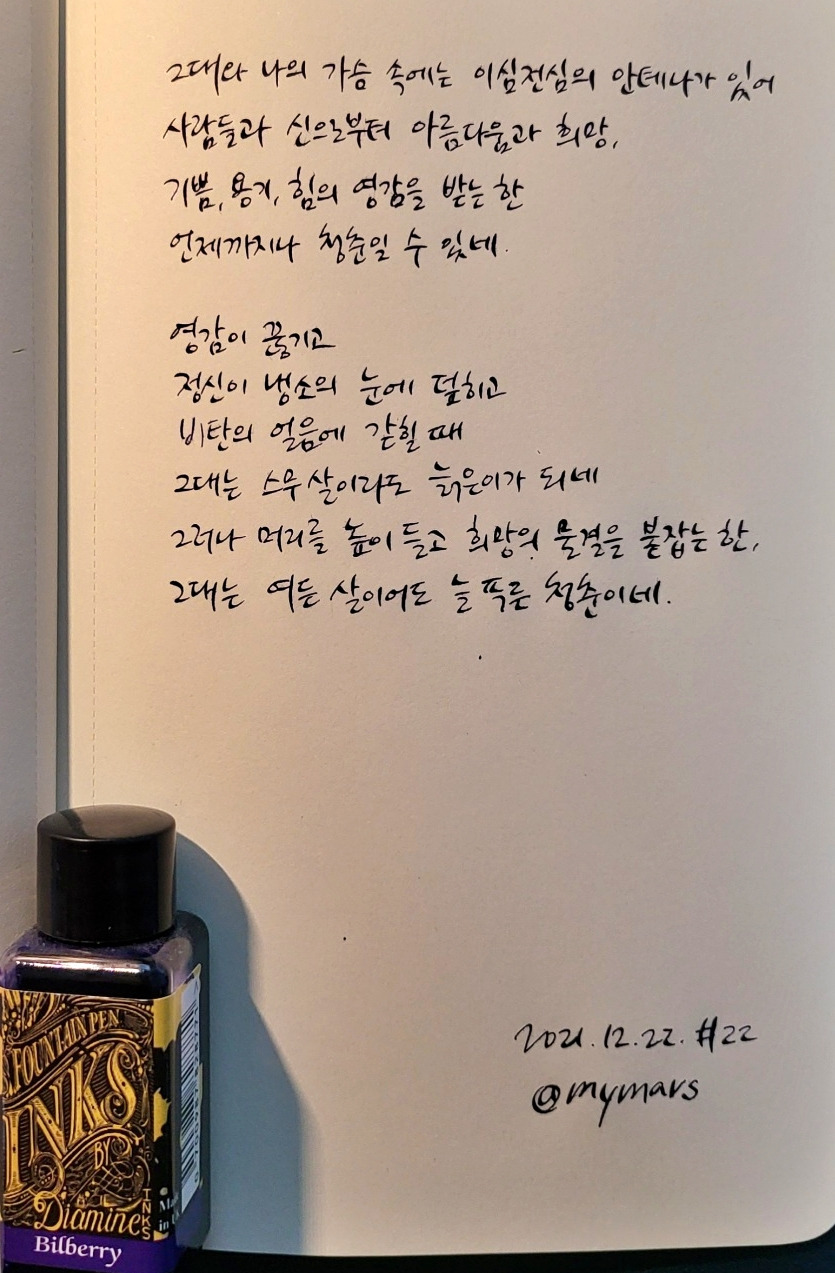 그대와 나의 가슴 속에는 이심전심의 안테나가 있어
사람들과 신으로부터 아름다움과 희망,
기쁨, 용기, 힘의 영감을 받는 한
언제까지나 청춘일 수 있네.
영감이 끊기고
정신이 냉소의 눈에 덮히고
비탄의 얼음에 갇힐 때
그대는 스무살이라도 늙은이가 되네
그러나 머리를 높이 들고 희망의 물결을 붙잡는 한,
그대는 여든 살이어도 늘 푸른 청춘이네.
2021.12.22. #22
@mymars
FOUNTAIN PEN
INKS
BY
Diamine
INKS
Bilberry